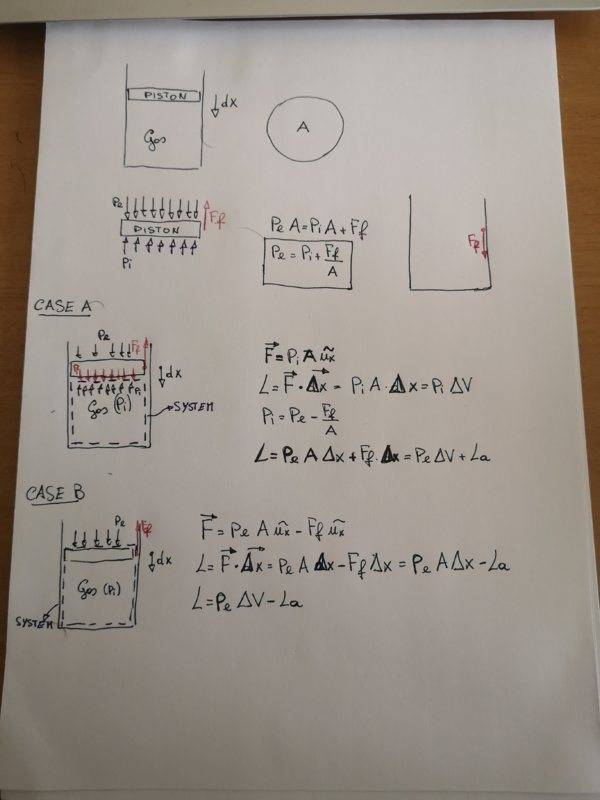 PISTON
dx
Gas
A
Pe
Ff
PISTON
Pi
Pe A = Pi A + Ff
Pe = Pi + Ff/A
Ff
CASE A
Pe
Ff
Pi
dx
Pi
Gas (Pi)
SYSTEM
F⃗ = Pi A ũx
L = F⃗ · Δx⃗ = Pi A · Δx = Pi ΔV
Pi = Pe - Ff/A
L = Pe A Δx + Ff · Δx = Pe ΔV + La
CASE B
Pe
Ff
dx
Gas (Pi)
SYSTEM
F⃗ = Pe A ũx - Ff ũx
L = F⃗ · Δx⃗ = Pe A Δx - Ff Δx = Pe A Δx - La
L = Pe ΔV - La